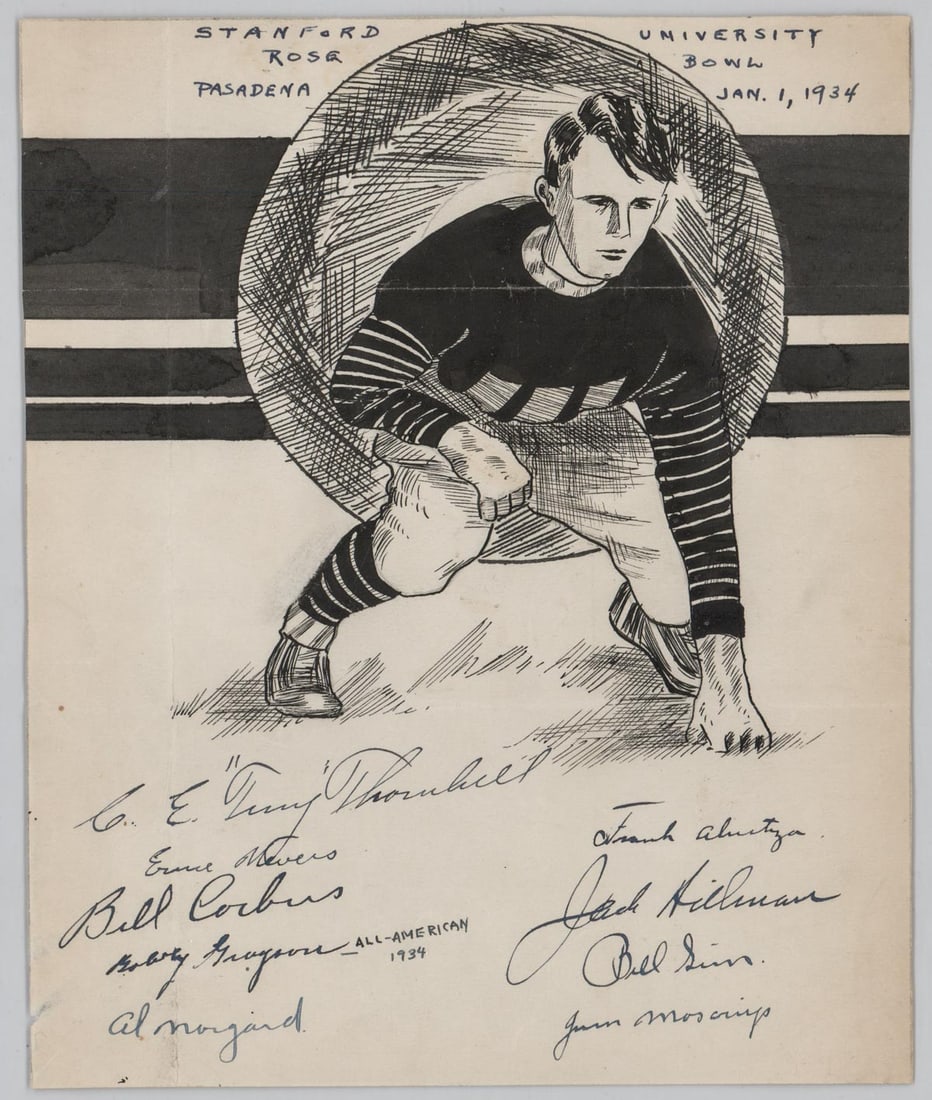 STANFORD UNIVERSITY
ROSE BOWL
PASADENA JAN. 1, 1934
C. E. "Tiny" Thornhill
Ernie Nevers
Bill Corbus
Bobby Grayson — ALL-AMERICAN
1934
Al Norgard
Frank Alustiza.
Jack Hillman
Bill